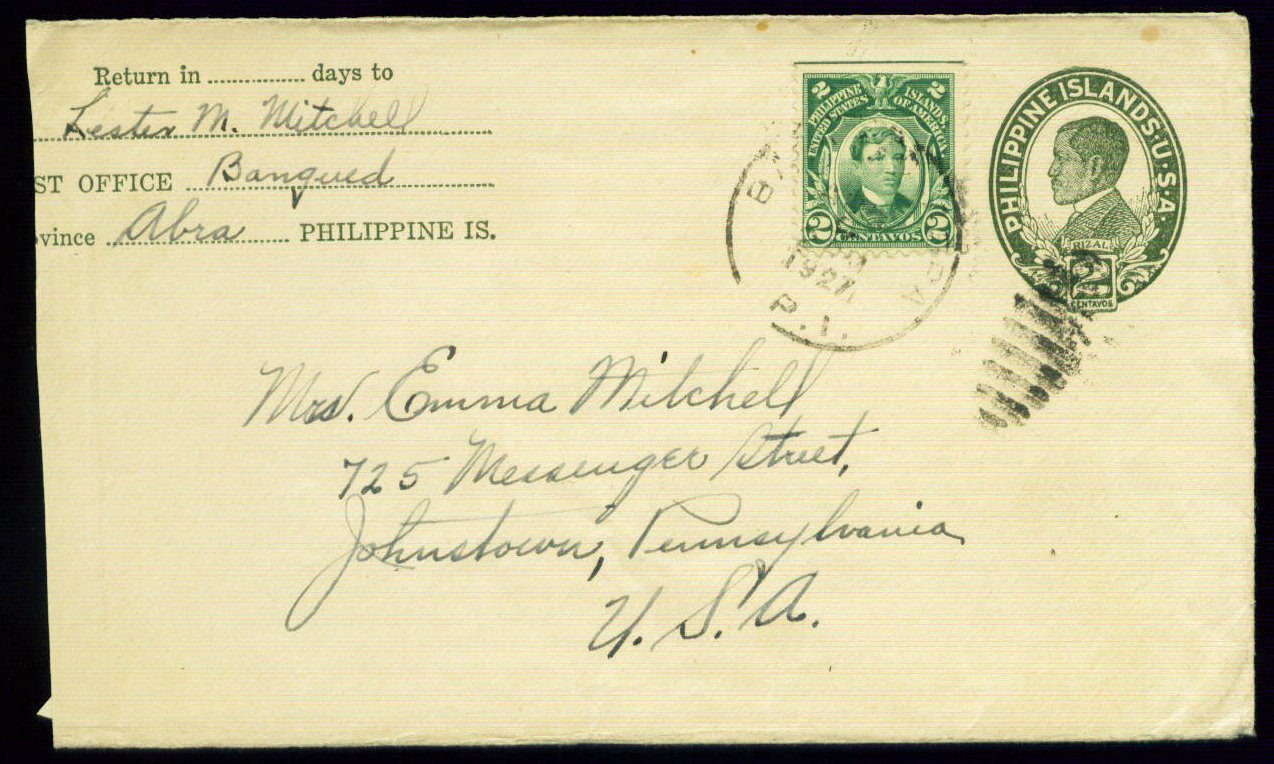 Return in ............... days to
Lester M. Mitchell
ST OFFICE Bangued
vince Abra PHILIPPINE IS.
2 2
PHILIPPINE ISLANDS
UNITED STATES OF AMERICA
2 CENTAVOS 2
PHILIPPINE ISLANDS·U·S·A·
RIZAL
2
CENTAVOS
P.I.
Mrs. Emma Mitchell
725 Messenger Street,
Johnstown, Pennsylvania
U. S. A.